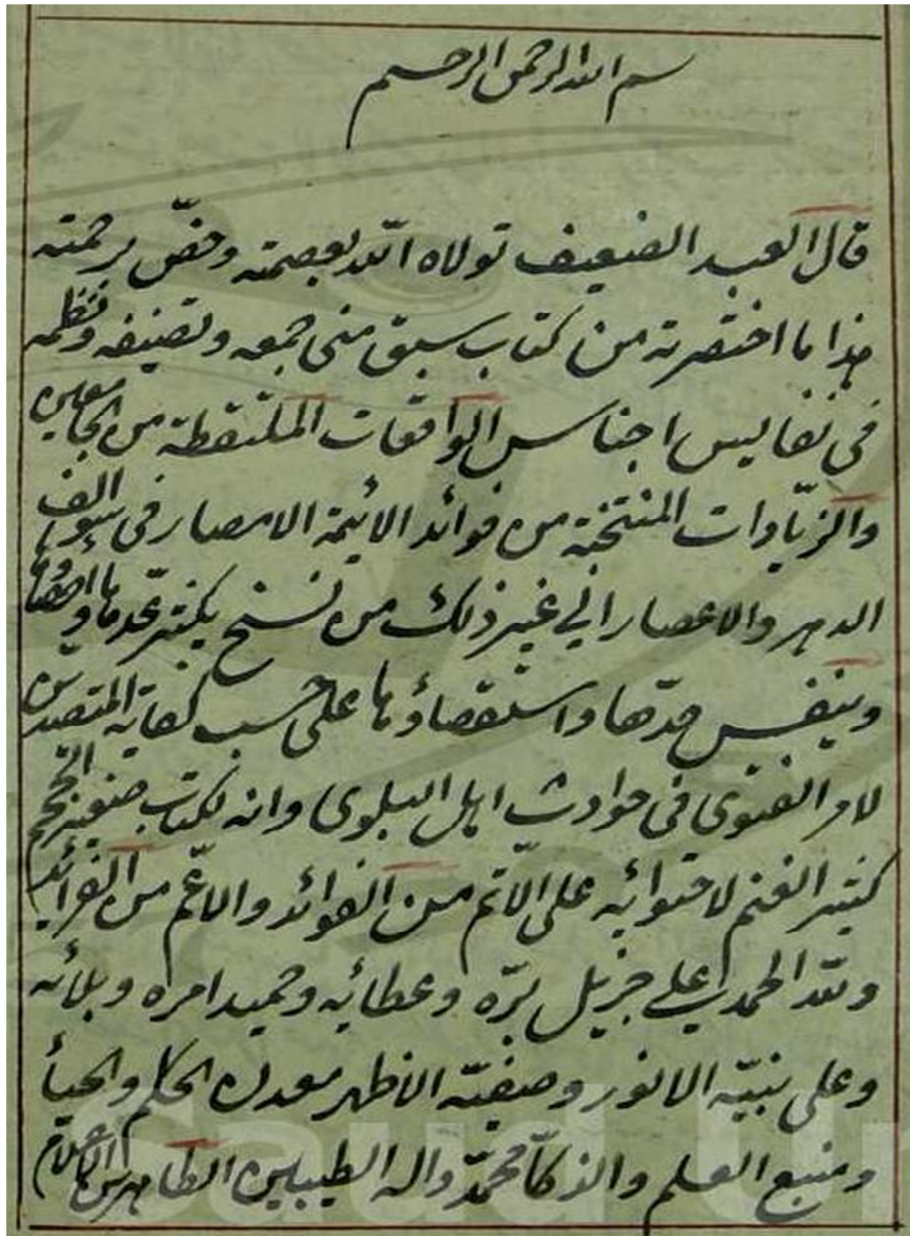 بسم الله الرحمن الرحيم
قال العبد الضعيف تولاه الله بعصمته وخصّ برحمته
هذا ما اختصرته من كتاب سبق منى جمعه وتصنيفه ونظمه
فى نفايس اجناس الواقعات الملتقطة من الجامعين
والزّيادات المنتخبة من فوائد الائمة الامصار فى سوالف
الدهر والاعصار الى غير ذلك من نسخ يكثر عدّها واحصاؤها
وينفس حدّها واستقصاؤها على حسب كفاية المتصدين
لامر الفتوى فى حوادث اهل البلوى وانه لكتاب صغير الحجم
كثير الغنم لاحتوائه على الاتم من الفوائد والاعم من الفرائد
ولله الحمد على جزيل برّه وعطائه وحميد امره وبلائه
وعلى نبيّه الانور وصفيّه الاظهر معدن الحلم والحيأ
ومنبع العلم والذكأ محمّد واله الطيبين الطاهرين
Saud Un